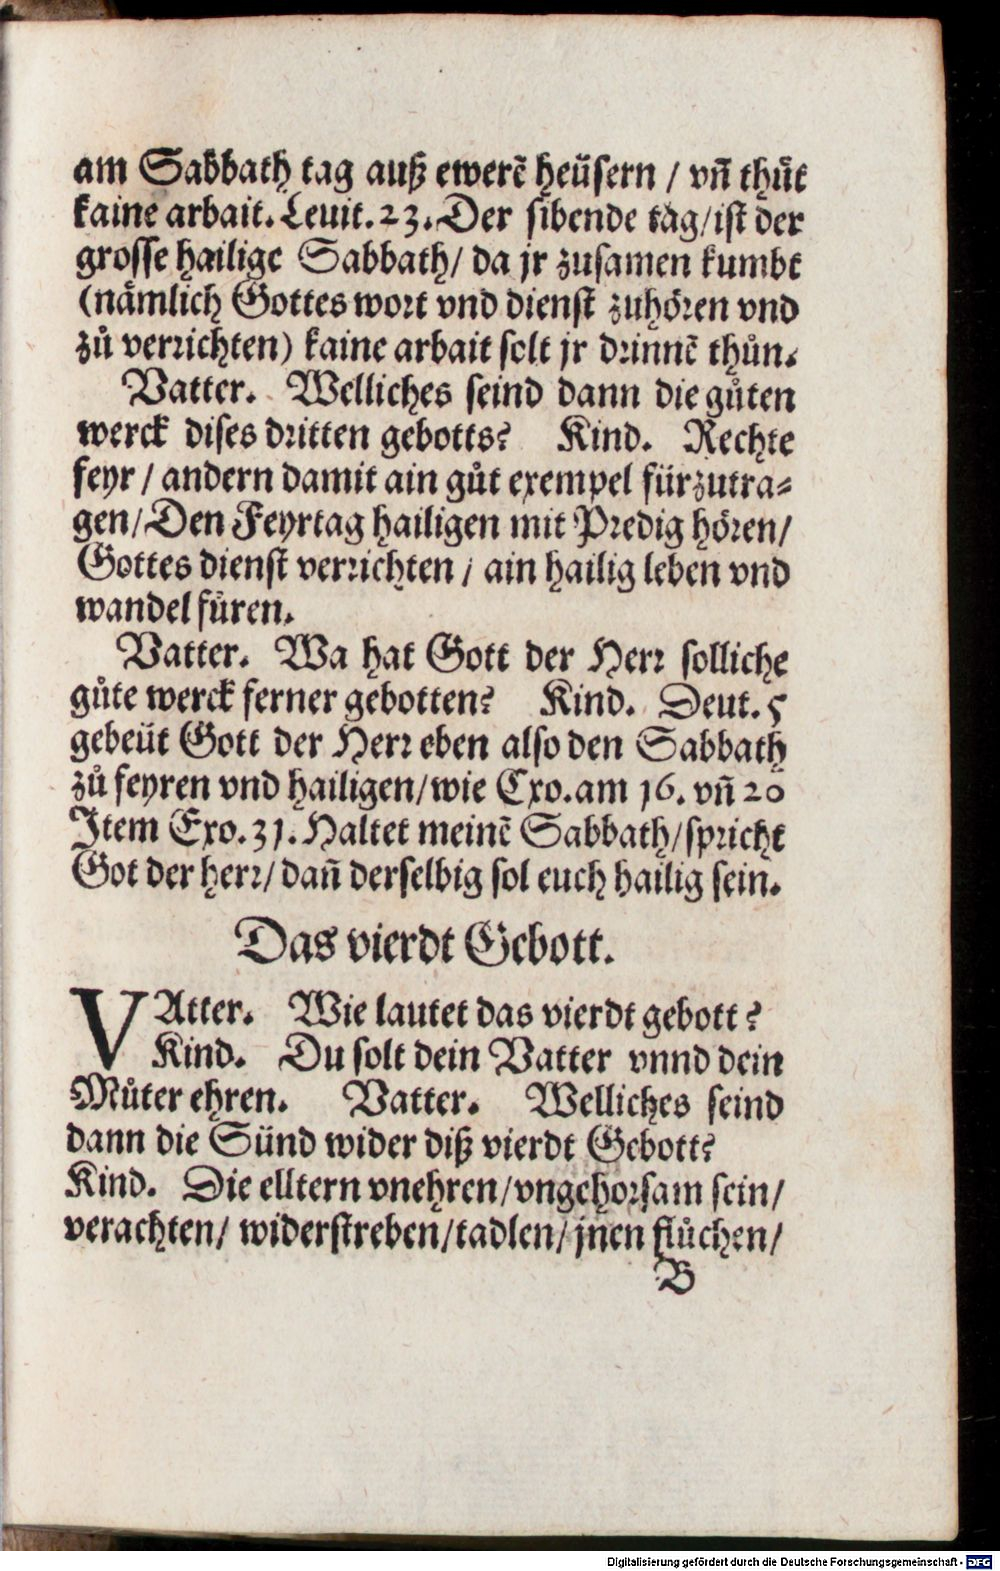 am Sabbath tag auß ewerẽ heüsern / vñ thůt
kaine arbait. Leuit. 23. Der sibende tag/ist der
grosse hailige Sabbath/ da jr zusamen kumbt
(nämlich Gottes wort vnd dienst zuhören vnd
zů verrichten) kaine arbait solt jr drinnẽ thůn.
Vatter. Welliches seind dann die gůten
werck dises dritten gebotts? Kind. Rechte
feyr / andern damit ain gůt exempel fürzutra=
gen/ Den Feyrtag hailigen mit Predig hören/
Gottes dienst verrichten / ain hailig leben vnd
wandel füren.
Vatter. Wa hat Gott der Herr solliche
gůte werck ferner gebotten? Kind. Deut. 5
gebeüt Gott der Herr eben also den Sabbath
zů feyren vnd hailigen/wie Exo. am 16. vñ 20
Item Exo. 31. Haltet meinẽ Sabbath/spricht
Got der herr/ dañ derselbig sol euch hailig sein.
Das vierdt Gebott.
VAtter. Wie lautet das vierdt gebott?
Kind. Du solt dein Vatter vnnd dein
Můter ehren. Vatter. Welliches seind
dann die Sünd wider diß vierdt Gebott?
Kind. Die elltern vnehren/vngehorsam sein/
verachten/ widerstreben/tadlen/ jnen flůchen/
B
Digitalisierung gefördert durch die Deutsche Forschungsgemeinschaft - DFG